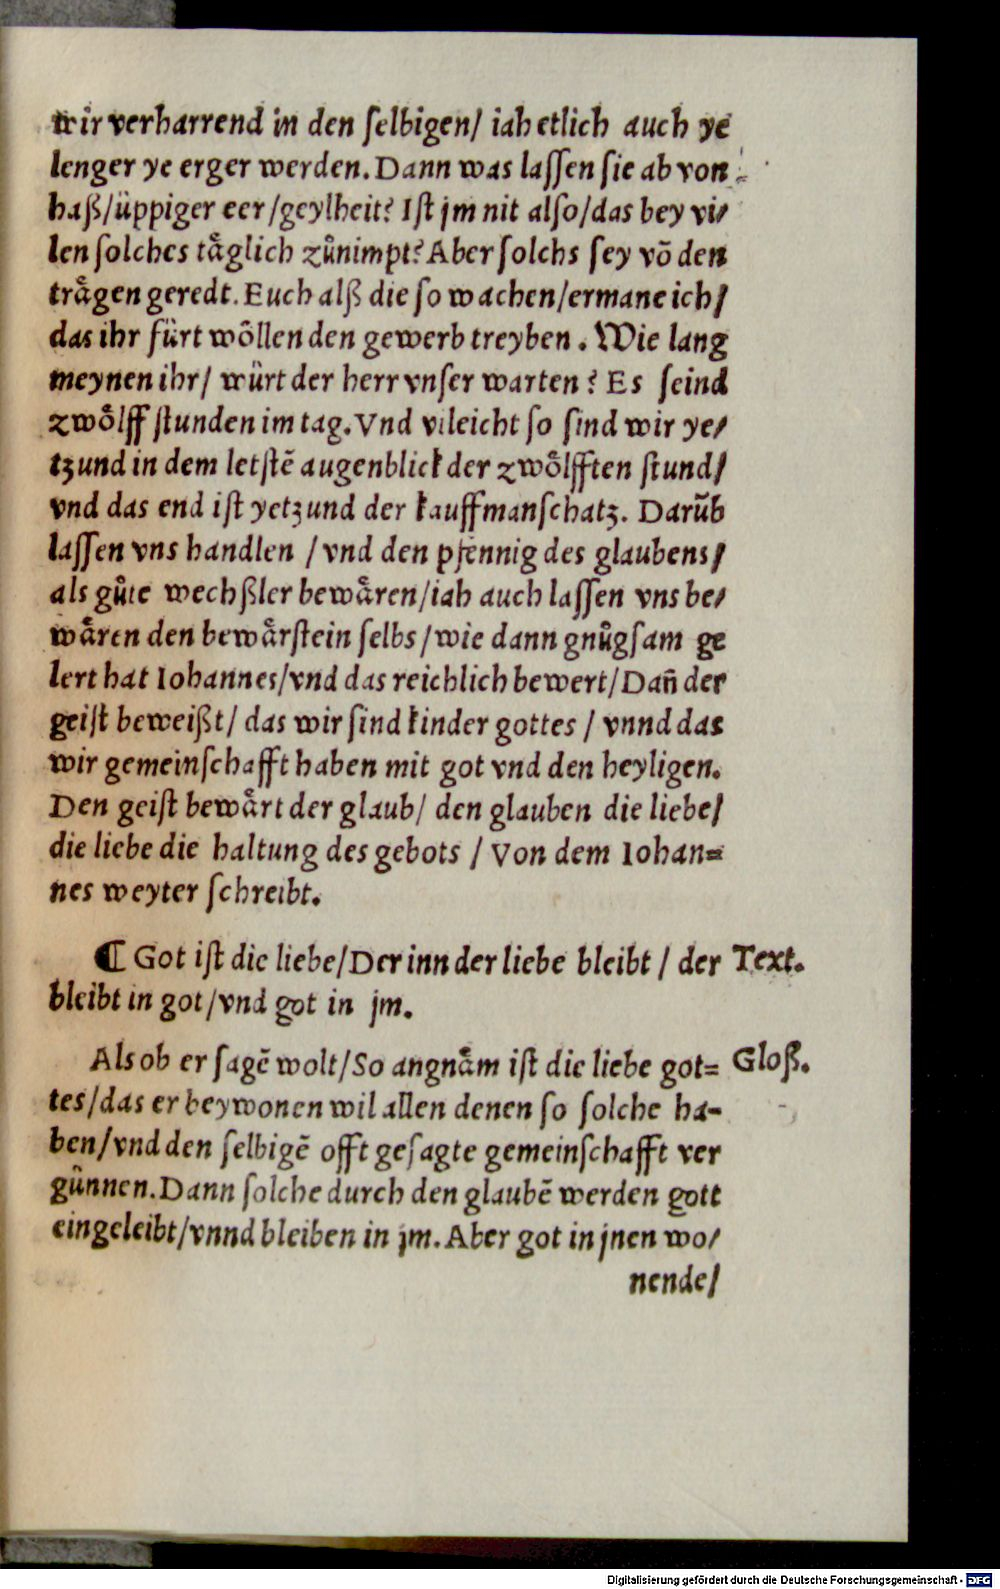 wir verharrend in den ſelbigen/ iah etlich auch ye
lenger ye erger werden. Dann was laſſen ſie ab von
haß/üppiger eer/geylheit? Iſt jm nit alſo/das bey vi/
len ſolches taͤglich zuͦnimpt? Aber ſolchs ſey võ den
traͤgen geredt. Euch alß die ſo wachen/ermane ich/
das ihr fürt woͤllen den gewerb treyben. Wie lang
meynen ihr/ würt der herr vnſer warten? Es ſeind
zwoͤlff ſtunden im tag. Vnd vileicht ſo ſind wir ye/
tzund in dem letſtẽ augenblick der zwoͤlfften ſtund/
vnd das end iſt yetzund der kauffmanſchatz. Darũb
laſſen vns handlen /vnd den pfennig des glaubens/
als guͦte wechßler bewaͤren/iah auch laſſen vns be/
waͤren den bewaͤrſtein ſelbs/wie dann gnuͦgſam ge
lert hat Iohannes/vnd das reichlich bewert/Dañ der
geiſt beweißt/ das wir ſind kinder gottes / vnnd das
wir gemeinſchafft haben mit got vnd den heyligen.
Den geiſt bewaͤrt der glaub/ den glauben die liebe/
die liebe die haltung des gebots / Von dem Iohan=
nes weyter ſchreibt.
¶ Got iſt die liebe/Der inn der liebe bleibt / der Text.
bleibt in got/vnd got in jm.
Als ob er ſagẽ wolt/So angnaͤm iſt die liebe got= Gloß.
tes/das er beywonen wil allen denen ſo ſolche ha-
ben/vnd den ſelbigẽ offt geſagte gemeinſchafft ver
günnen. Dann ſolche durch den glaubẽ werden gott
eingeleibt/vnnd bleiben in jm. Aber got in jnen wo/
nende/
Digitalisierung gefördert durch die Deutsche Forschungsgemeinschaft - DFG